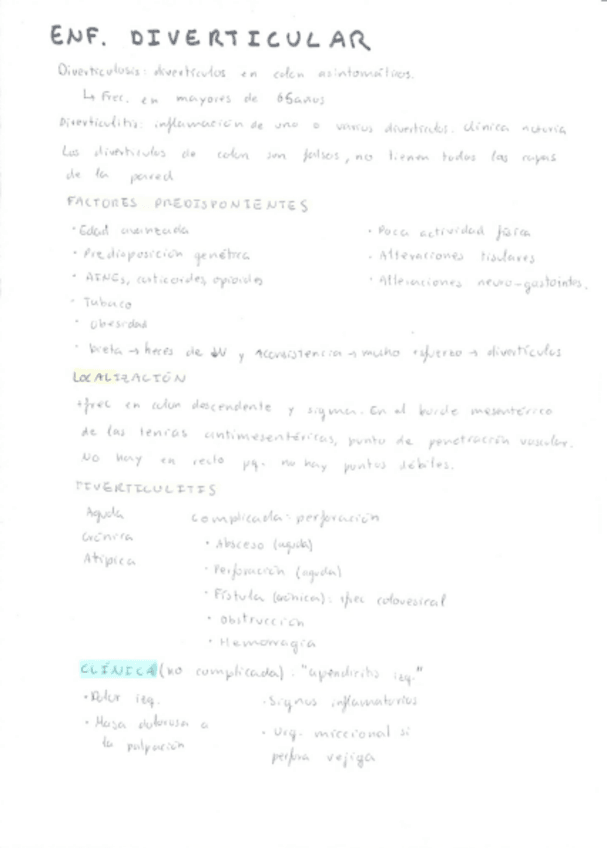 ENF. DIVERTICULAR
Diverticulosis: divertículos en colon asintomáticos.
↳ Frec. en mayores de 65 años
Diverticulitis: inflamación de uno o varios divertículos. Clínica notoria
Los divertículos de colon son falsos, no tienen todas las capas
de la pared
FACTORES PREDISPONENTES
· Edad avanzada
· Predisposición genética
· AINEs, corticoides, opioides
· Tabaco
· Obesidad
· Poca actividad física
· Alteraciones tisulares
· Alteraciones neuro-gastrointes.
· Dieta → heces de ↓V y ↓consistencia → mucho esfuerzo → divertículos
LOCALIZACIÓN
+frec en colon descendente y sigma. En el borde mesentérico
de las tenias antimesentéricas, punto de penetración vascular.
No hay en recto pq. no hay puntos débiles.
DIVERTICULITIS
Aguda
Crónica
Atípica
Complicada: perforación
· Absceso (aguda)
· Perforación (aguda)
· Fístula (crónica): +frec colovesical
· Obstrucción
· Hemorragia
CLÍNICA (no complicada). "apendicitis izq."
· Dolor izq.
· Masa dolorosa a
la palpación
· Signos inflamatorios
· Urg. miccional si
perfora vejiga